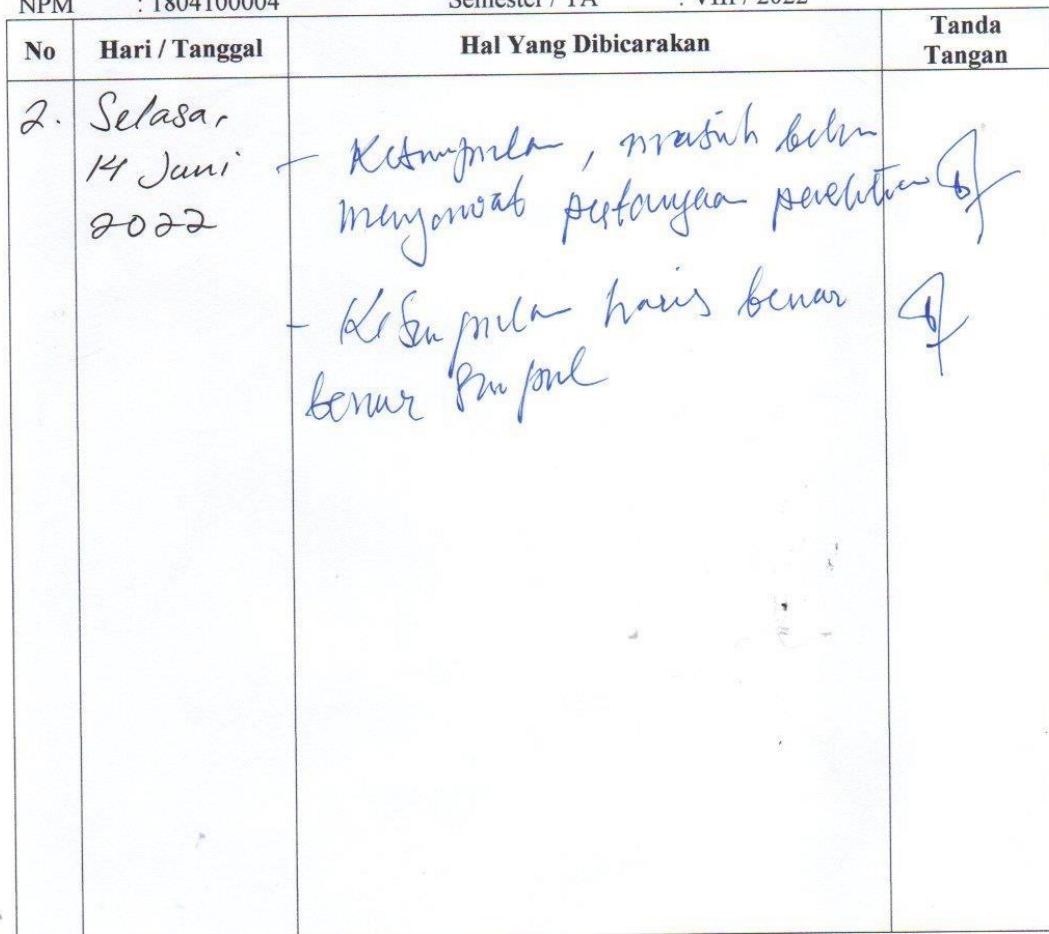 NPM : 1804100004 Semester / TA : VIII / 2022
No Hari / Tanggal Hal Yang Dibicarakan Tanda Tangan
2. Selasa, 14 Juni 2022
- Kesimpulan, masih belum
menjawab pertanyaan penelitian
- Kesimpulan harus benar
benar simpul